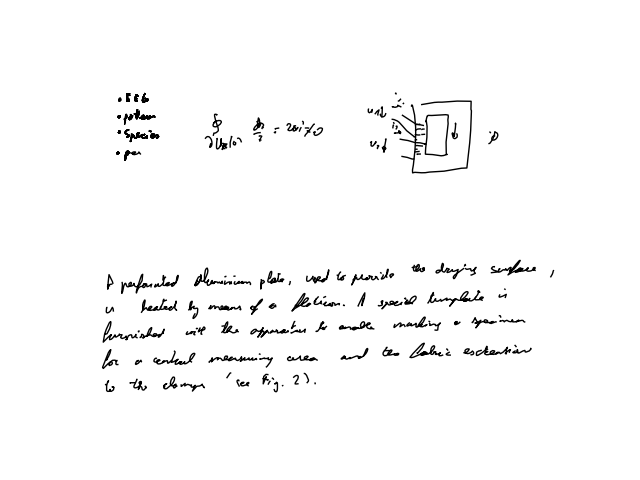 • EEG
• pattern
• Species
• per
∮_{∂U_{ε}(0)} dz/z = 2πi ≠ 0
u₁↓
i₂
u₂↓
A perforated aluminium plate, used to provide the drying surface,
is heated by means of a flatiron. A special template is
furnished with the apparatus to enable marking a specimen
for a central measuring area and the fabric extention
to the clamps (see Fig. 2).